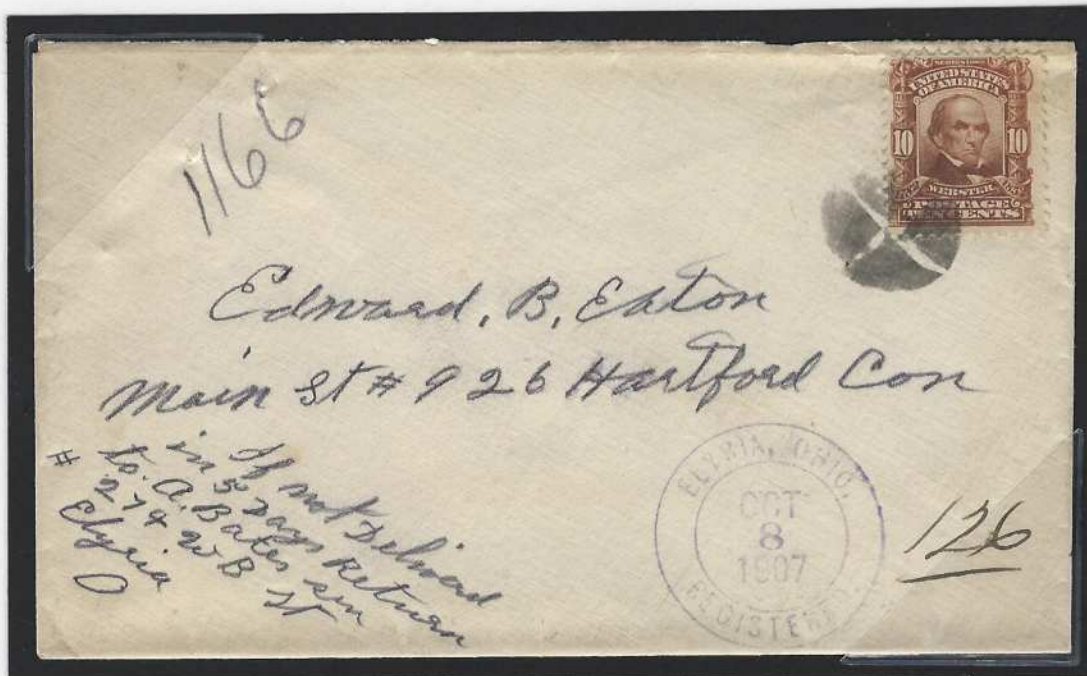 1166
SERIES 1902
UNITED STATES
OF AMERICA
10 10
WEBSTER
POSTAGE
TEN CENTS
Edward. B. Eaton
Main St # 926 Hartford Con
If not Deliverd
in 5 Days Return
to. A. Bates sen
# 274 W B St
Elyria
O
ELYRIA, OHIO.
OCT
8
1907
REGISTERED.
126